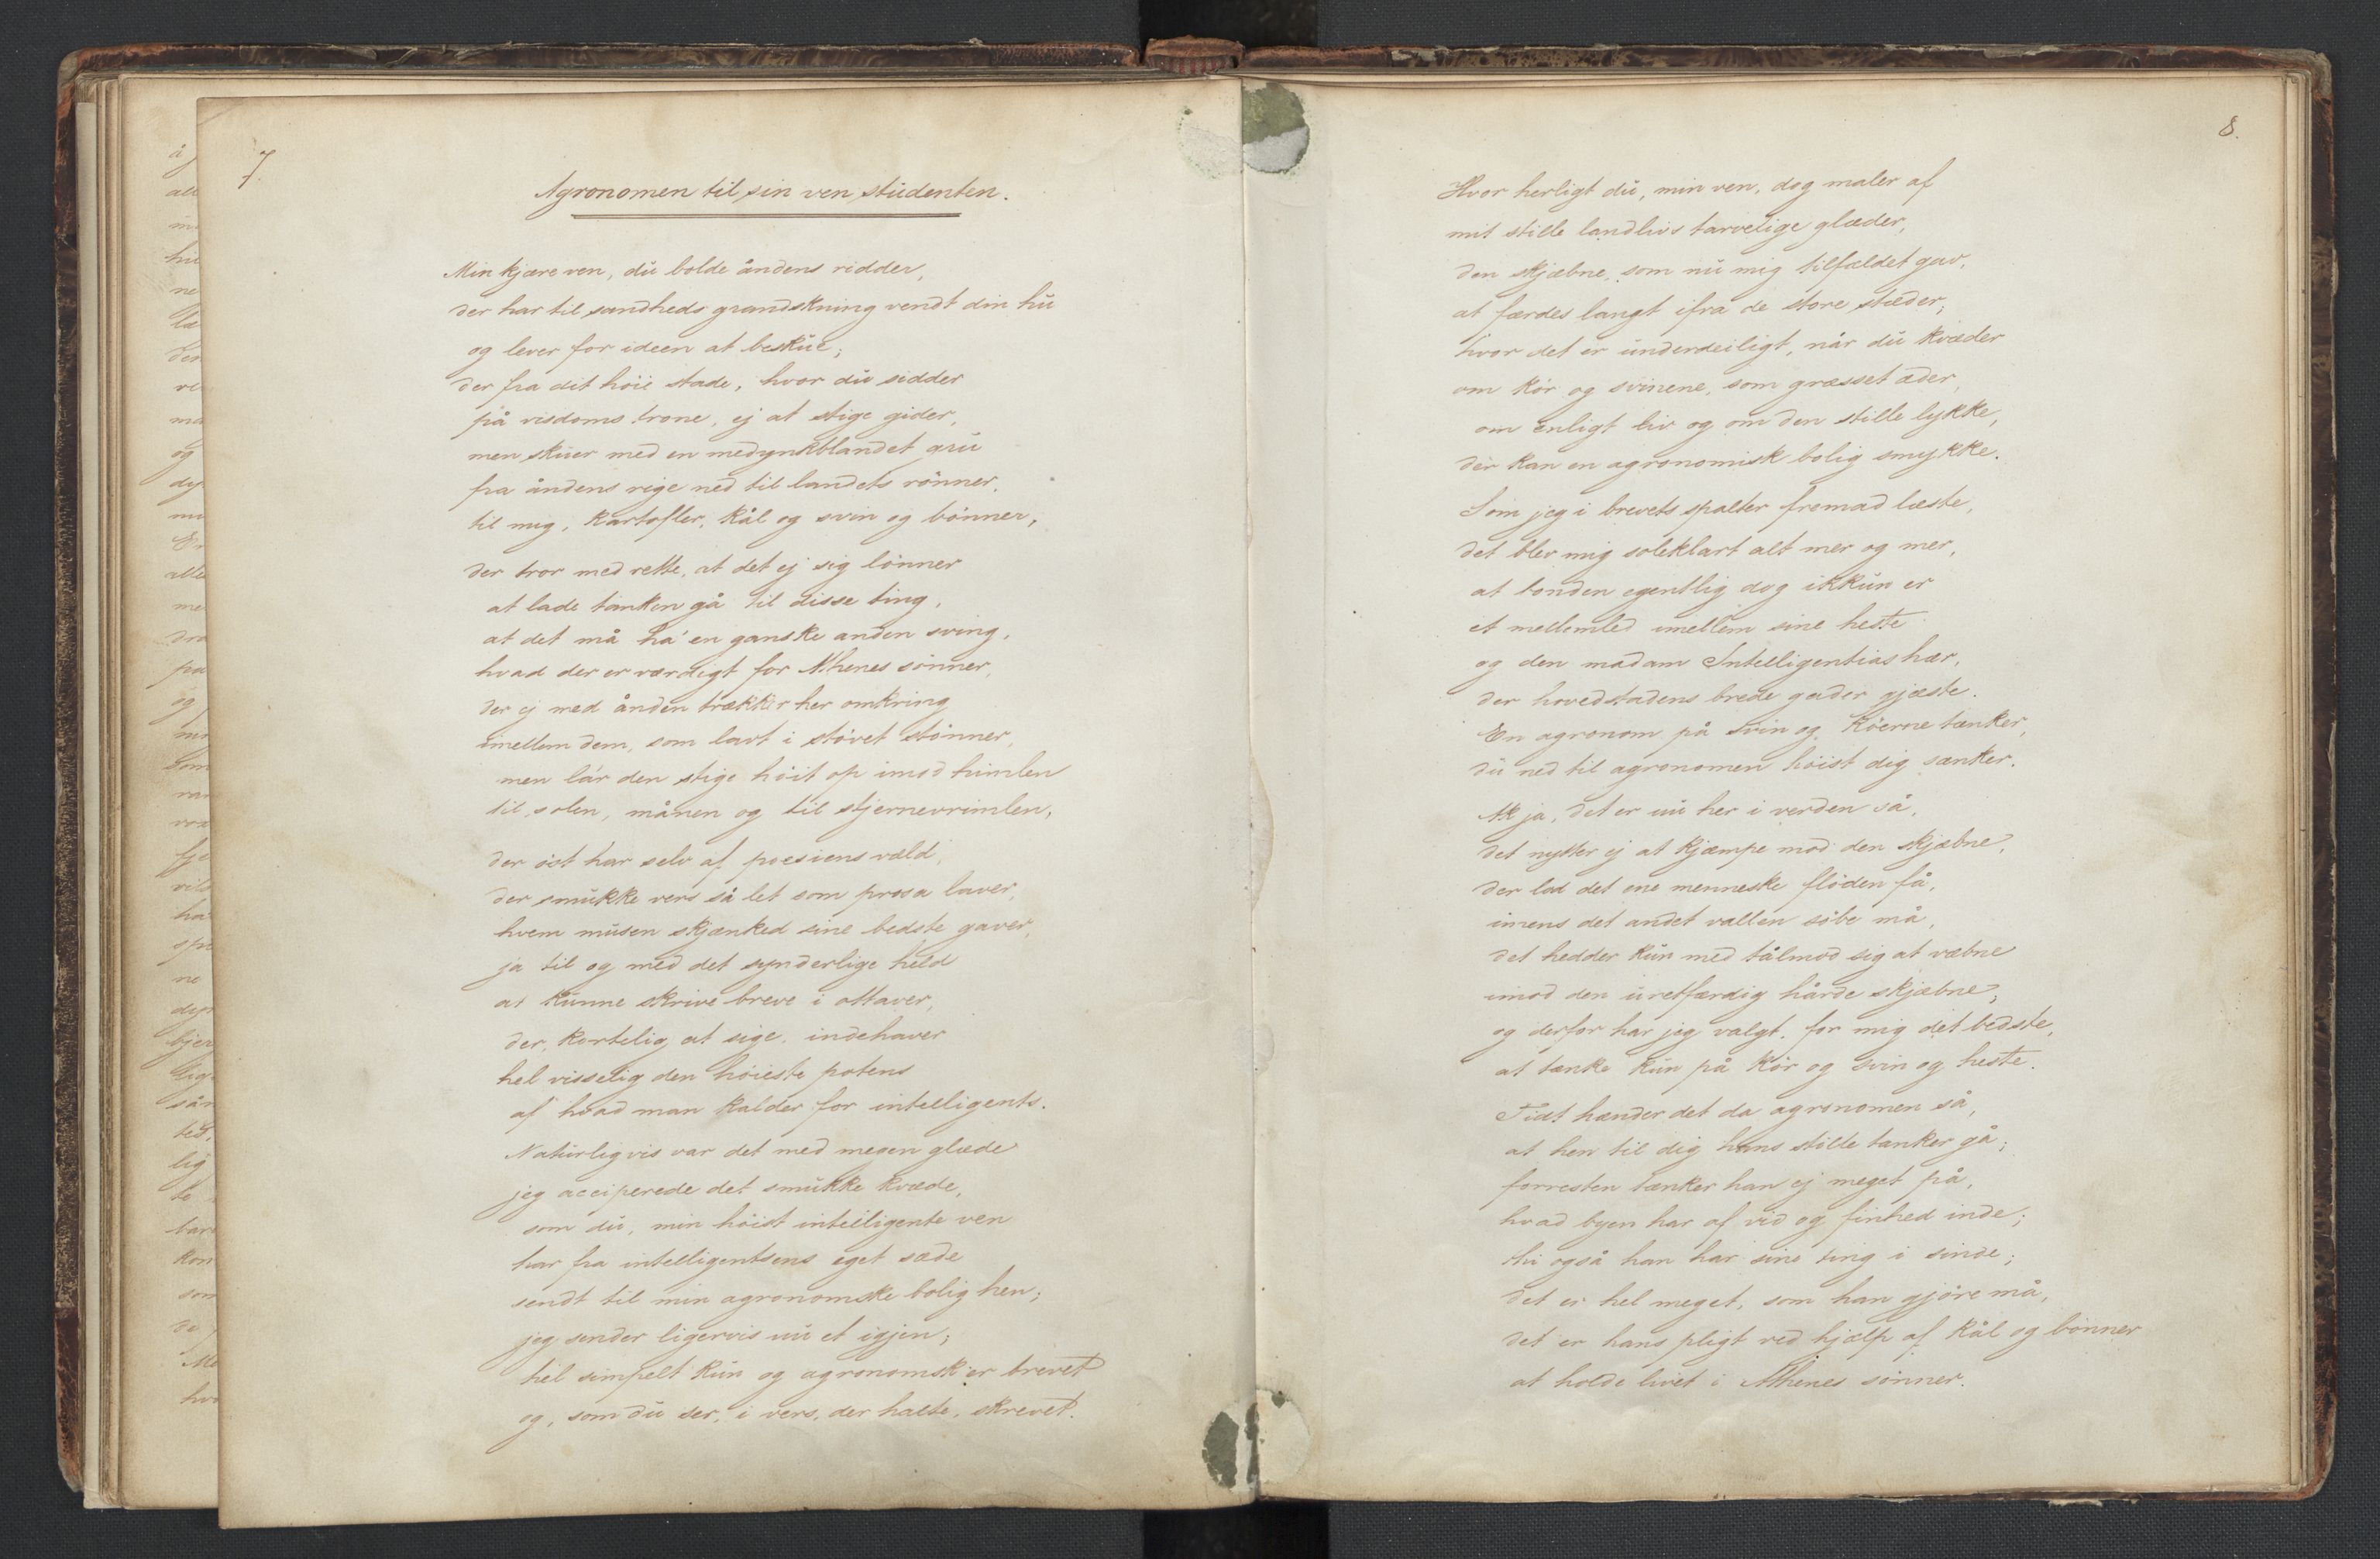 7.
Agronomen til sin ven studenten.
Min kjære ven, du bolde åndens ridder,
der har til sandheds grandskning vendt din hu
og lever for ideen at beskue;
der fra dit höie stade, hvor du sidder
på visdoms trone, ej at stige gider,
men skuer med en medynkblandet gru
fra åndens rige ned til landets rönner,
til mig, kartofler, kål og svin og bönner,
der tror med rette, at det ej sig lönner
at lade tanken gå til disse ting,
at det må ha' en ganske anden sving,
hvad der er værdigt for Athenes sönner,
der ej med ånden trækker her omkring
imellem dem, som lavt i stövet stönner,
men la'r den stige höit op imod himlen
til solen, månen og til stjernevrimlen,
der öst har selv af poesiens væld,
der smukke vers så let som prosa laver,
hvem musen skjænked sine bedste gaver,
ja til og med det synderlige held
at kunne skrive breve i ottaver,
der, kortelig at sige, indehaver
hel visselig den höieste potens
af hvad man kalder for intelligents.
Naturligvis var det med megen glæde
jeg acciperede det smukke kvæde,
som du, min höist intelligente ven
har fra intelligentsens eget sæde
sendt til min agronomske bolig hen;
jeg sender ligervis nu et igjen;
hel simpelt kun og agronomsk er brevet
og, som du ser, i vers, der halte, skrevet.
8.
Hvor herligt du, min ven, dog maler af
mit stille landlivs tarvelige glæder,
den skjæbne, som nu mig tilfældet gav,
at færdes langt ifra de store stæder;
hvor det er underdeiligt, når du kvæder
om kör og svinene, som græsset æder,
om enligt liv og om den stille lykke,
der kan en agronomisk bolig smykke.
Som jeg i brevets spalter fremad læste,
det blev mig soleklart alt mer og mer,
at bonden egentlig dog ikkun er
et mellemled imellem sine heste
og den madam Intelligentias hær,
der hovedstadens brede gader gjæste.
En agronom på svin og köerne tænker,
du ned til agronomen höist dig sænker.
Ak ja, det er nu her i verden så,
det nytter ej at kjæmpe mod den skjæbne,
der lod det ene menneske flöden få,
imens det andet vallen söbe må,
det hedder kun med tålmod sig at væbne
imod den uretfærdig hårde skjæbne,
og derfor har jeg valgt, for mig det bedste,
at tænke kun på kör og svin og heste.
Tidt hænder det da agronomen så,
at hen til dig hans stille tanker gå;
forresten tænker han ej meget på,
hvad byen har af vid og finhed inde;
thi også han har sine ting i sinde;
det er hel meget, som han gjöre må,
det er hans pligt ved hjælp af kål og bönner
at holde livet i Athenes sönner.